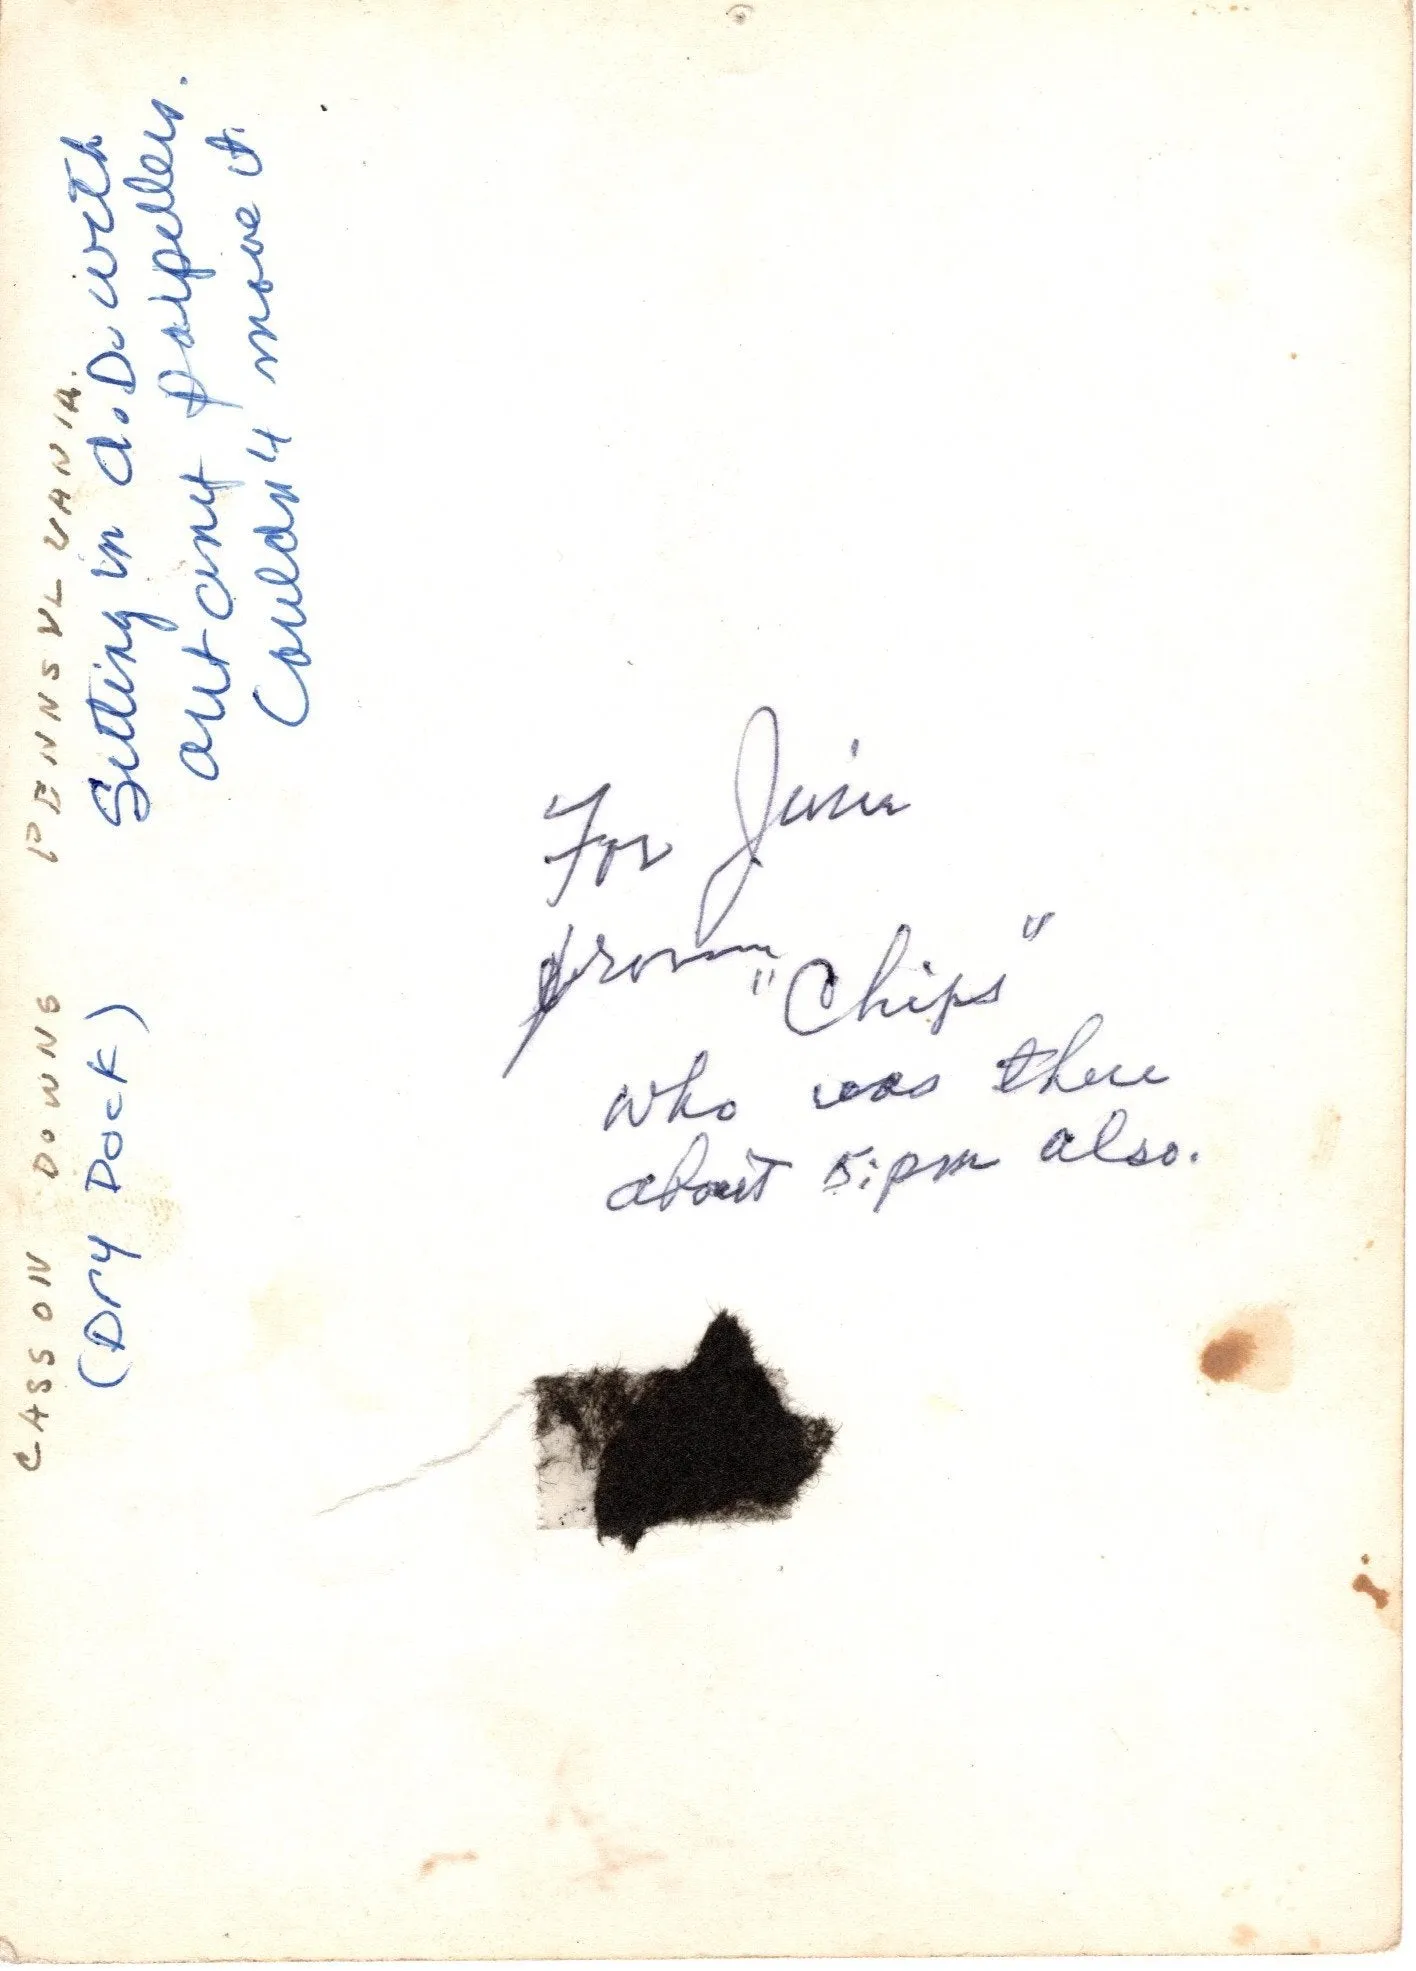 CASSON DOWNS PENNSYLVANIA.
(Dry Dock)
Sitting in d.D. with
out any propellers.
Couldn't move it.
For June
from "Chips"
who was there
about 5:pm also.